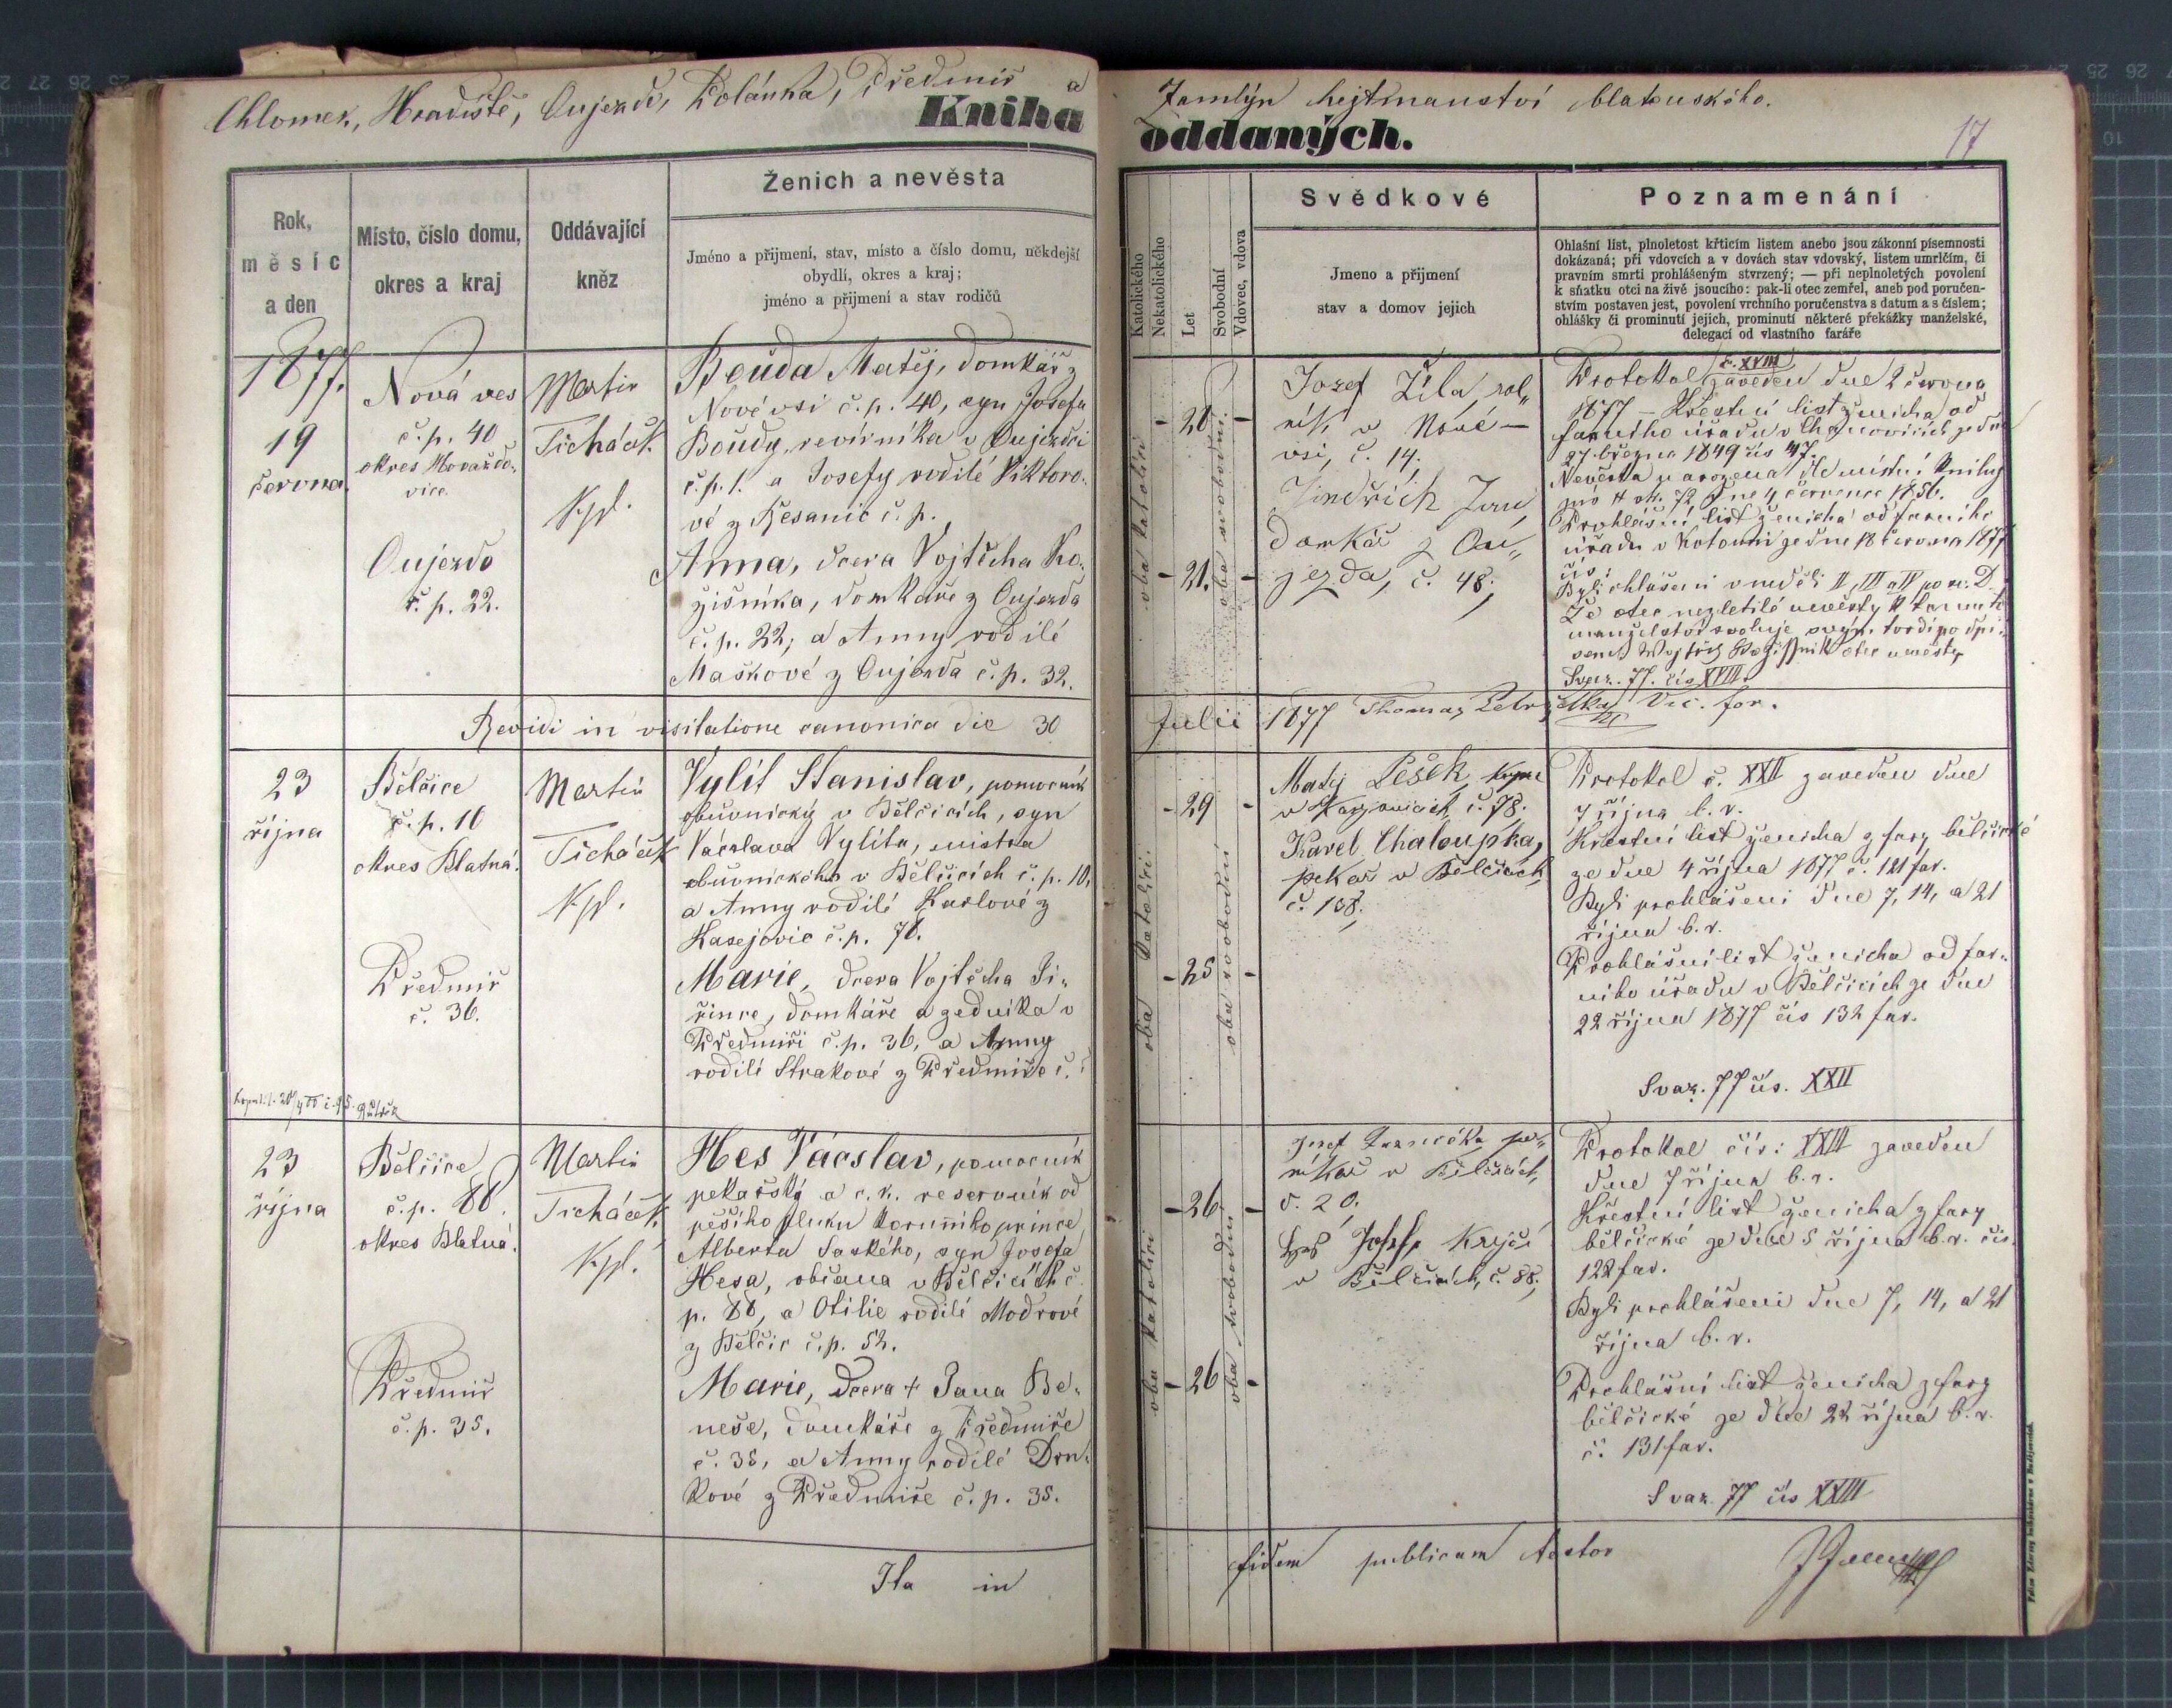 Chlomek, Hradiště, Oujezd, Kolánka, Předmiř a
Zamlýn hejtmanství blatenského.
Kniha
oddaných.
17
Rok,
měsíc
a den
Místo, číslo domu,
okres a kraj
Oddávající
kněz
Ženich a nevěsta
Jméno a přijmení, stav, místo a číslo domu, někdejší
obydlí, okres a kraj;
jméno a přijmení a stav rodičů
Katolického
Nekatolického
Let
Svobodní
Vdovec, vdova
Svědkové
Jmeno a přijmení
stav a domov jejich
Poznamenání
Ohlašní list, plnoletost křticím listem anebo jsou zákonní písemnosti
dokázaná; při vdovcích a v dovách stav vdovský, listem umrlčím, či
pravním smrti prohlášeným stvrzený; — při neplnoletých povolení
k sňatku otci na živě jsoucího: pak-li otec zemřel, aneb pod poručen-
stvím postaven jest, povolení vrchního poručenstva s datum a s číslem;
ohlášky či prominutí jejich, prominutí některé překážky manželské,
delegací od vlastního faráře
1877.
19
června.
Nová ves
č.p. 40
okres Horažďo-
vice.
Oujezdo
č.p. 22.
Martin
Ticháček
Kpl.
Bouda Matěj, domkář z
Nové vsi č.p. 40, syn Josefa
Boudy, revírníka v Oujezdci
č.p. 1. a Josefy rodilé Viktoro-
vé z Řesanic č.p.
Anna, dcera Vojtěcha Ko-
žišníka, domkáře z Oujezda
č.p. 22, a Anny rodilé
Maškové z Oujezda č.p. 32.
oba katolíci
- 28 -
- 21. -
oba svobodní
Josef Žila, rol„
ník v Nové
vsi, č. 14.
Jindřich Jan,
domkář z Ou„
jezda, č. 48.
Protokol č. XVIII zaveden dne 2 června
1877 – Křestní list ženicha od
farního úřadu v Chanovicích ze dne
27 března 1849 čís 47.
Nevěsta narozena dle místní knihy
str. 72 dne 4 července 1856.
Prohlášní list ženicha od farního
úřadu v Kotouni ze dne 18 června 1877
čís:
Byli ohlášeni v neděli II, III a IV po sv. D.
Že otec nezletilé nevěsty k tomuto
manželství svoluje svým tvrdí podpi-
sem otec nevěsty
Svaz. 77. čís XVIII.
Revidi in visitatione canonica die 30
Julii 1877 Thomas Petr Vic. for.
23
října
Bělčice
č.p. 10
okres Blatná.
Předmiř
č. 36.
Martin
Ticháček
Kpl.
Vylít Stanislav, pomocník
obuvnický v Bělčicích, syn
Václava Vylíta, mistra
obuvnického v Bělčicích č.p. 10,
a Anny rodilé Karlové z
Kasejovic č.p. 78.
Marie, dcera Vojtěcha Ši-
řince, domkáře a zedníka v
Předmiři č.p. 36, a Anny
rodilé Strakové z Předmiře č.
oba katolíci.
- 29 -
- 25 -
oba svobodní
Matěj Lešek,
v Kasejovicích, č. 78.
Karel Chaloupka,
pekař v Bělčicích,
č. 108.
Protokol č. XXII zaveden dne
7 října b.r.
Křestní list ženicha z fary bělčické
ze dne 4 října 1877 č. 121 far.
Byli prohlášeni dne 7, 14, a 21
října b.r.
Prohlášní list ženicha od far-
ního úřadu v Bělčicích ze dne
22 října 1877 čís 132 far.
Svaz. 77 čís. XXII
23
října
Bělčice
č.p. 88.
okres Blatná.
Předmiř
č.p. 35.
Martin
Ticháček
Kpl.
Hes Václav, pomocník
pekařský a c.k. reservník od
pěšího pluku korunního prince
Alberta Saského, syn Josefa
Hesa, občana v Bělčicích č.
p. 88, a Otilie rodilé Modrové
z Bělčic č.p. 52.
Marie, dcera + Jana Be-
neše, domkáře z Předmiře
č. 35, a Anny rodilé Drn-
kové z Předmiře č.p. 35.
oba katolíci
- 26 -
- 26 -
oba svobodní
Josef
v Bělčicích,
č. 20.
Josef, Krejčí
v Bělčicích, č. 88.
Protokol čís: XXIII zaveden
dne 7 října b.r.
Křestní list ženicha z fary
bělčické ze dne 5 října b.r. čís.
122 far.
Byli prohlášeni dne 7, 14, a 21
října b.r.
Prohlášní list ženicha z fary
bělčické ze dne 22 října b.r.
č. 131 far.
Svaz. 77 čís XXIII
Ita in
fidem publicam testor